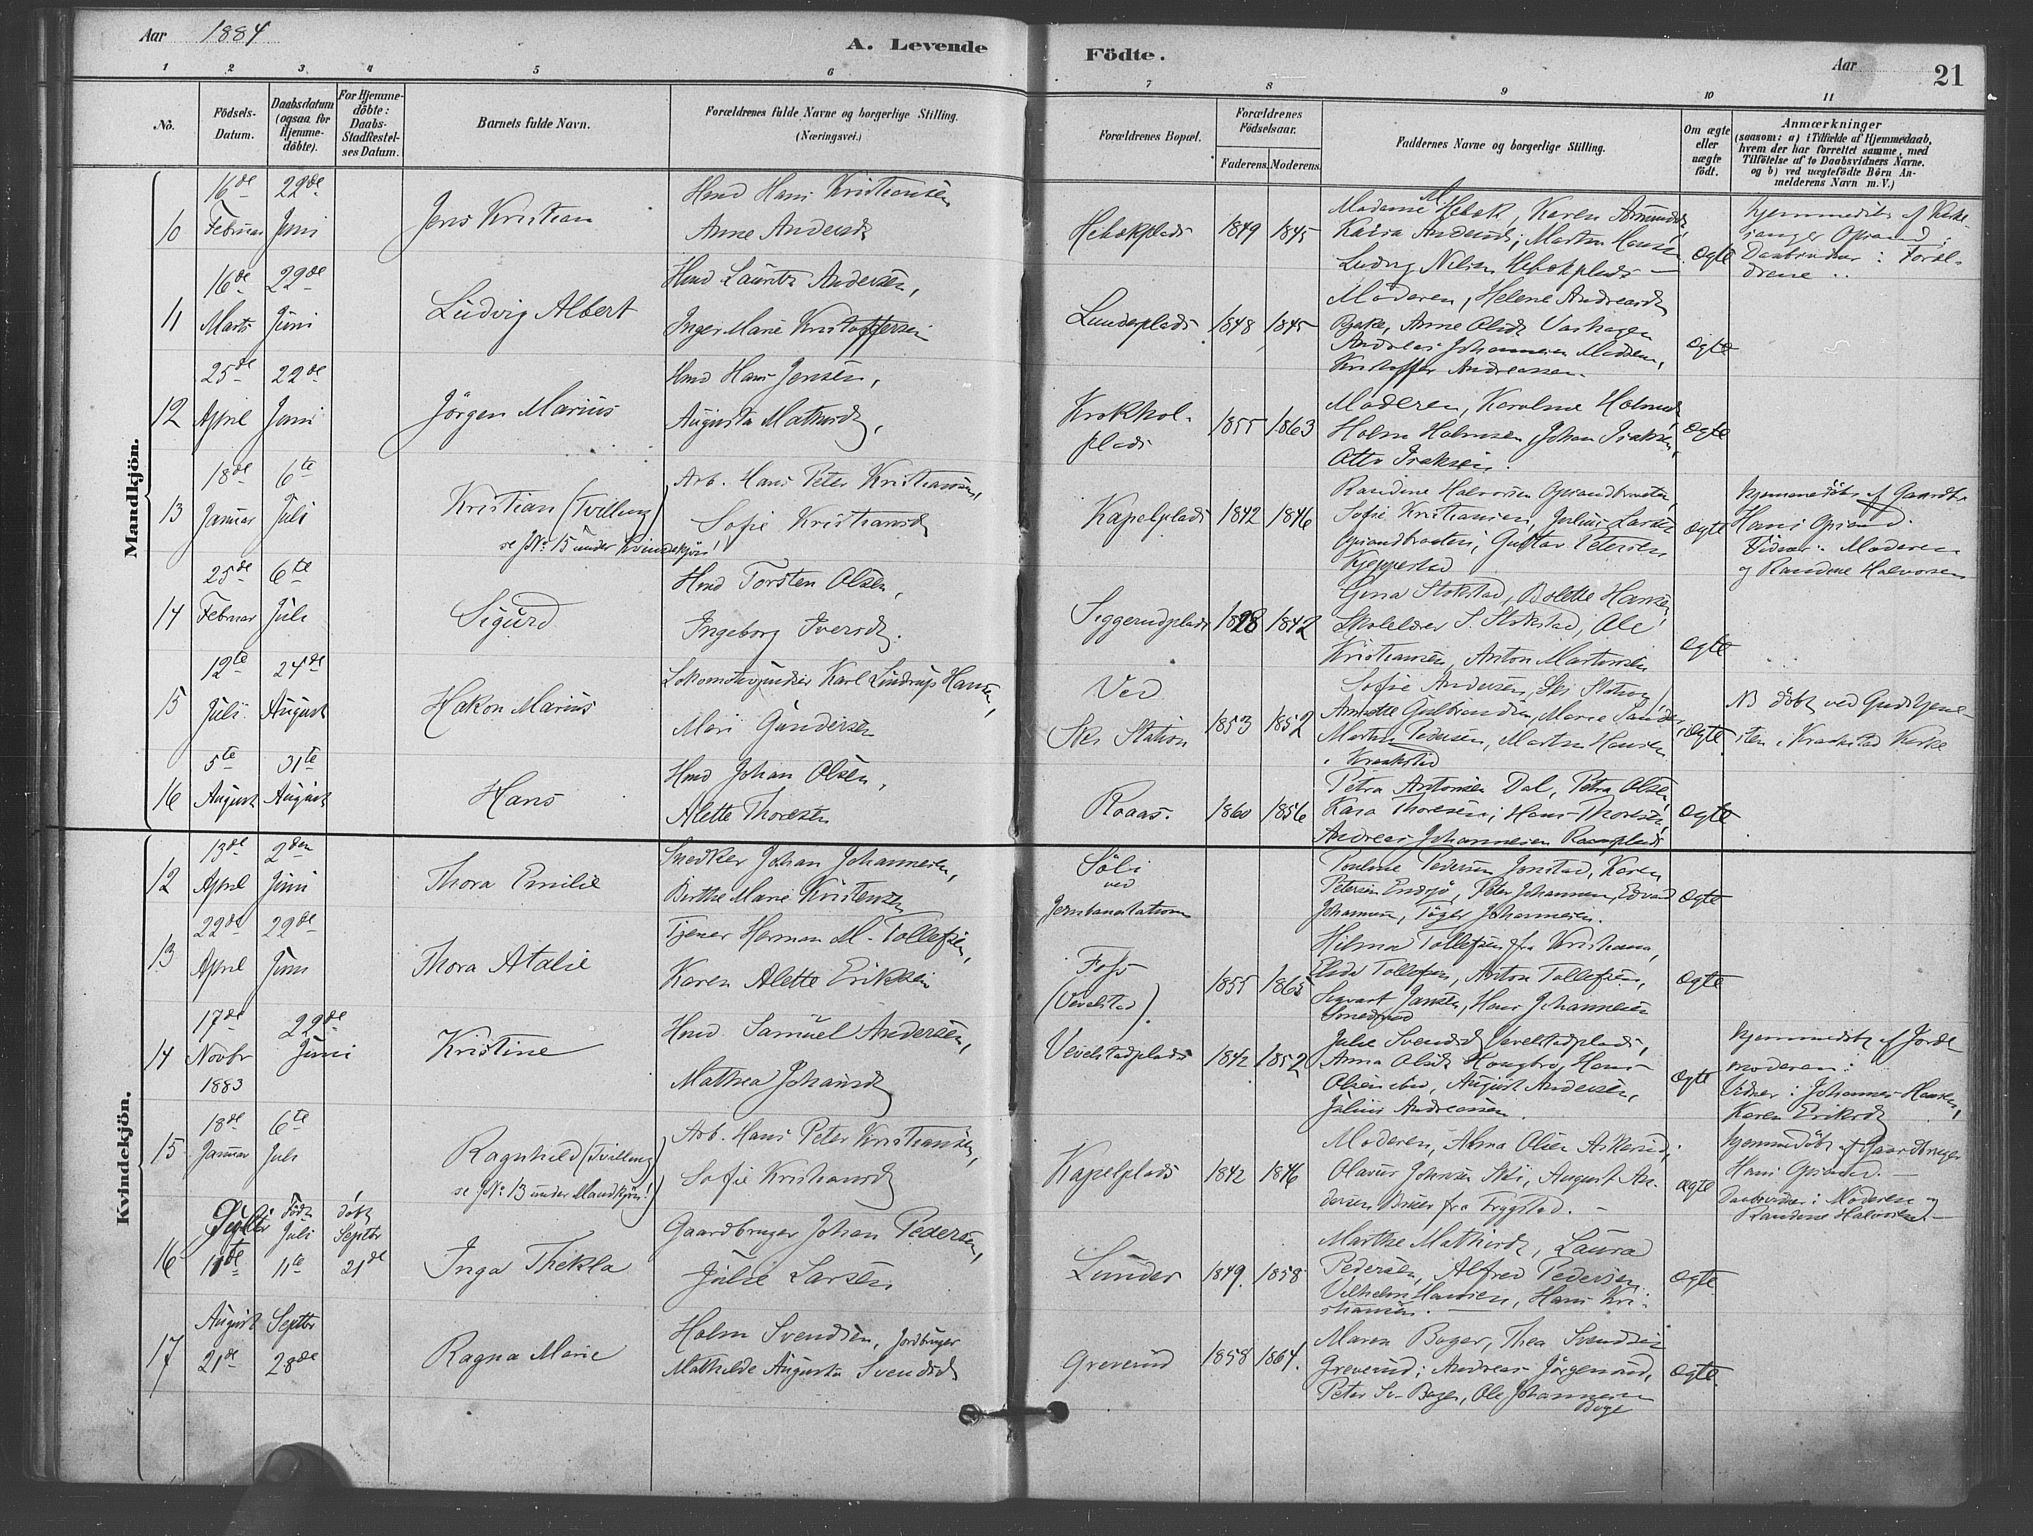 Aar 1884
A. Levende
Födte.
Aar
21
1 2 3 4 5 6 7 8 9 10 11
No.
Födsels-Datum.
Daabsdatum (ogsaa for Hjemme-döbte).
For Hjemme-döbte: Daabs-Stadfæstel-ses Datum.
Barnets fulde Navn.
Forældrenes fulde Navne og borgerlige Stilling.
(Næringsvei.)
Forældrenes Bopæl.
Forældrenes Födselsaar.
Faderens. Moderens.
Faddernes Navne og borgerlige Stilling.
Om ægte eller uægte födt.
Anmærkninger
(saasom: a) i Tilfælde af Hjemmedaab,
hvem der har forrettet samme, med
Tilföielse af to Daabsvidners Navne.
og b) ved uægtefödte Börn An-
melderens Navn m. V.)
Mandkjön.
10 16de Februar 22de Juni
Jens Kristian
Hmd Hans Kristiansen
Anne Andersd
Hebekplads
1849 1845
Madame Hebek, Karen
Ludvig Nilsen Hebekplads
ægte
hjemmedöbt af Kirke-
sanger Opsand;
Daabsvidner: Foræl-
drene
11 16de Marts 22de Juni
Ludvig Albert
Hmd Laurits Andersen,
Inger Marie Kristoffersen
Lundeplads
1848 1845
Moderen, Helene Andreasd
Anne Olsd
Andreas Johannesen
Kristoffer Andreassen.
ægte
12 25de April 22de Juni
Jörgen Marius
Hmd Hans Jensen,
Augusta Mathisd,
Krokhol-
plads
1855 1863
Moderen, Karoline Holmsd
Holm Holmsen, Johan Isaksen,
Otto Isaksen.
ægte
13 18de Januar 6te Juli
Kristian (Tvilling)
se No. 15 under Kvindekjön!
Arb. Hans Peter Kristiansen,
Sofie Kristiansd
Kapelplads
1842 1846
Randine Halvorsen Opsandbraaten,
Sofie Kristiansen, Julius Larsen
Opsandbraaten, Gustav Petersen
Kjeppestad
ægte
hjemmedöbt af Gaardbr.
Hans Opsand.
Vidner: Moderen
og Randine Halvorsen
14 25de Februar 6te Juli
Sigurd
Hmd Torsten Olsen,
Ingeborg Iversd.
Siggerudplads
1842
Gina Stokstad, Bolette Hansen,
Skolelærer S. Stokstad, Ole
Kristiansen, Anton Martinsen
ægte
15 12te Juli 24de August
Hakon Marius
Lokomotivpudser Karl Lindrup Hansen,
Mari Gundersen
Ved
Ski Station
1853 1852
Sofie Andersen, Ski Station,
Annette Gulbrandsen, Marie
Martin Pedersen, Martin Hansen
i Kraakstad
ægte
NB döbt ved Gudstjene-
sten i Kraakstad Kirke
16 5te August 31te August
Hans
Hmd Johan Olsen,
Alette Thoresen
Roaas.
1860 1856
Petra Antonsen Dal, Petra Olsen,
Kara Thoresen; Hans Thoresen,
Andreas Johannesen Roaasplads
ægte
Kvindekjön.
12 13de April 2den Juni
Thora Emilie
Snedker Johan Johannesen,
Birthe Marie Kristensen
ved
Jernbanstation
Pouline Pedersen Jonstad, Karen
Petersen Endsjö, Peter Johannesen, Edvard
Johannesen, Johannesen.
ægte
13 22de April 22de Juni
Thora Atalie
Tjener Herman M. Tollefsen,
Karen Alette Eriksen
Fos
(Vevelstad).
1855 1865
Hilma Tollefsen fra Kristiania,
Elida Tollefsen, Anton Tollefsen,
Sigvart Jansen, Hans Johannesen
ægte
14 17de Novbr 1883 22de Juni
Kristine
Hmd. Samuel Andersen,
Mathea Johansd
Vevelstadplads
1842 1852
Julie Svendsd Vevelstadplads,
Anna Olsd Haugbro, Hans
Olsen, August Andersen,
Julius Andreassen.
ægte
hjemmedöbt af Jorde-
moderen:
Vidner: Johannes Hansen,
Karen Eriksd
15 18de Januar 6te Juli
Ragnhild (Tvilling)
se No. 13 under Mandkjön!
Arb. Hans Peter Kristiansen,
Sofie Kristiansd
Kapelplads
1842 1846
Moderen, Alma Olsen Askersrud;
Olavus Johnsen Ski, August An-
dersen fra Frygstad.
ægte
hjemmedöbt af Gaardbruger
Hans Opsand.
Daabsvidner: Moderen og
Randine Halvorsen
16 Födt Juli 11te döbt Septbr 21de
Inga Thekla
Gaardbruger Johan Pedersen,
Julie Larsen
Lunder
1849. 1858
Marthe Mathisd, Laura
Pedersen, Alfred Pedersen,
Vilhelm Hansen, Hans Kri-
stiansen.
ægte
17 August 21de Septbr 28de
Ragna Marie
Holm Svendsen, Jordbruger
Mathilde Augusta Svendsd
Greverud
1858 1864.
Maren Boger, Thea Svendsen
Greverud; Andreas Jörgensrud,
Peter Sv. Boger, Ole Johannesen
ægte.